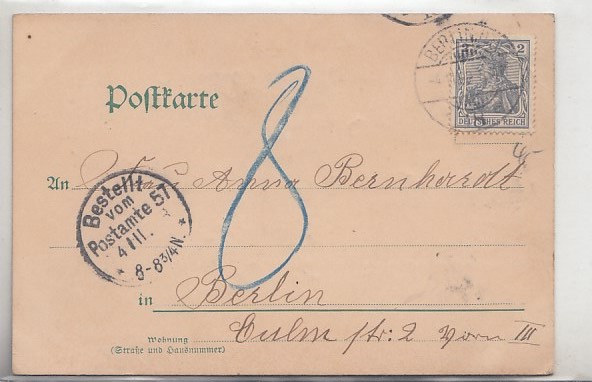 BERLIN
2
DEUTSCHES REICH
Postkarte
8
An Frau Anna Bernhardt
Bestellt
vom
Postamte 57
4 III.
8-8¾N.
in Berlin
Wohnung
(Straße und Hausnummer)
Culm str. 2 Vorn III